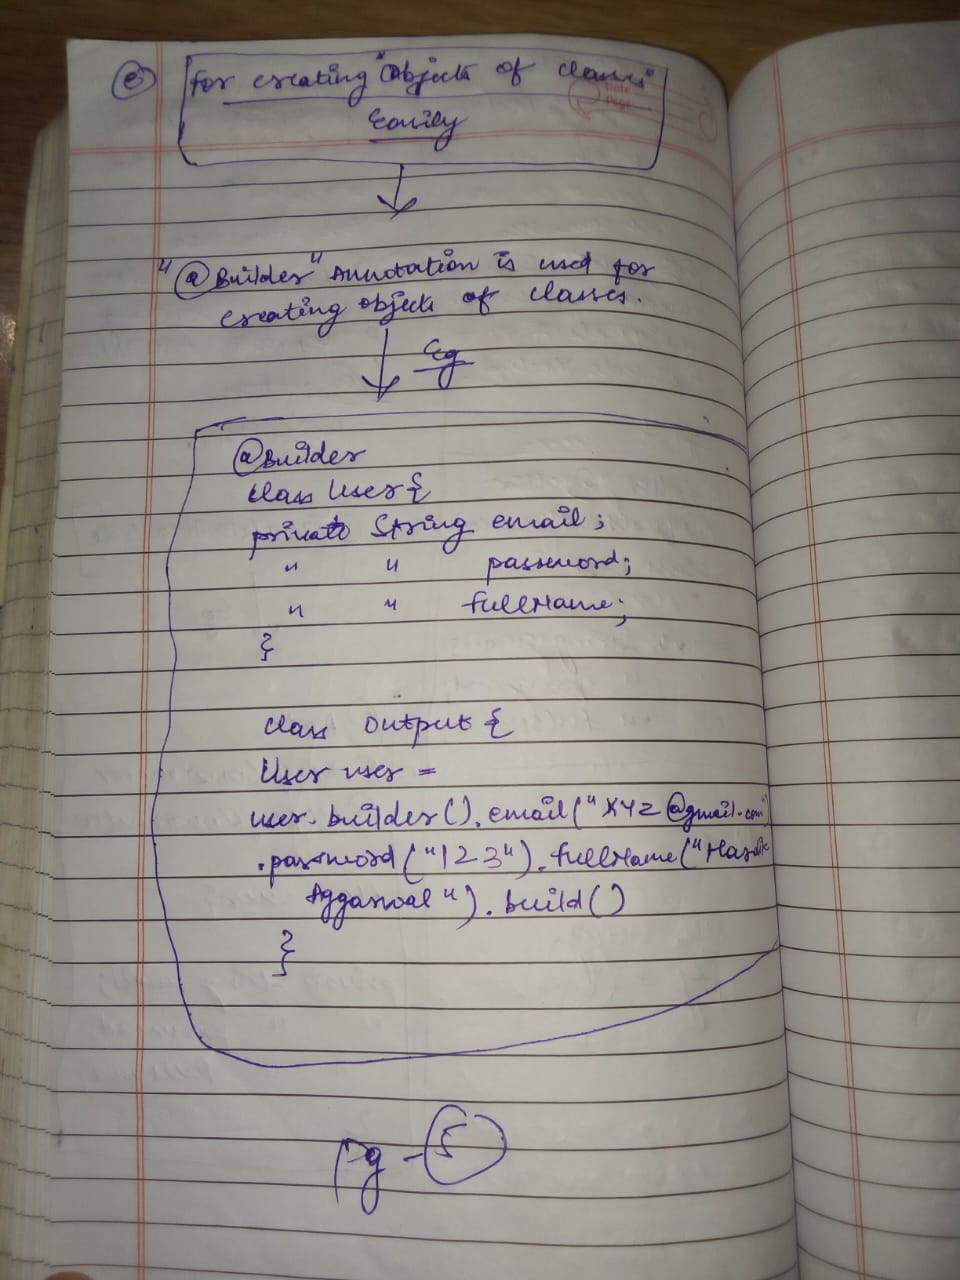 e) for creating "objects of classes"
Easily
"@Builder" Annotation is used for
creating objects of classes.
Eg
@Builder
class User {
private String email;
" " password;
" " fullName;
}
class Output {
User user =
user.builder().email("XYZ@gmail.com")
.password("123").fullName("
Aggarwal").build()
}
Pg - 5
Date
Page